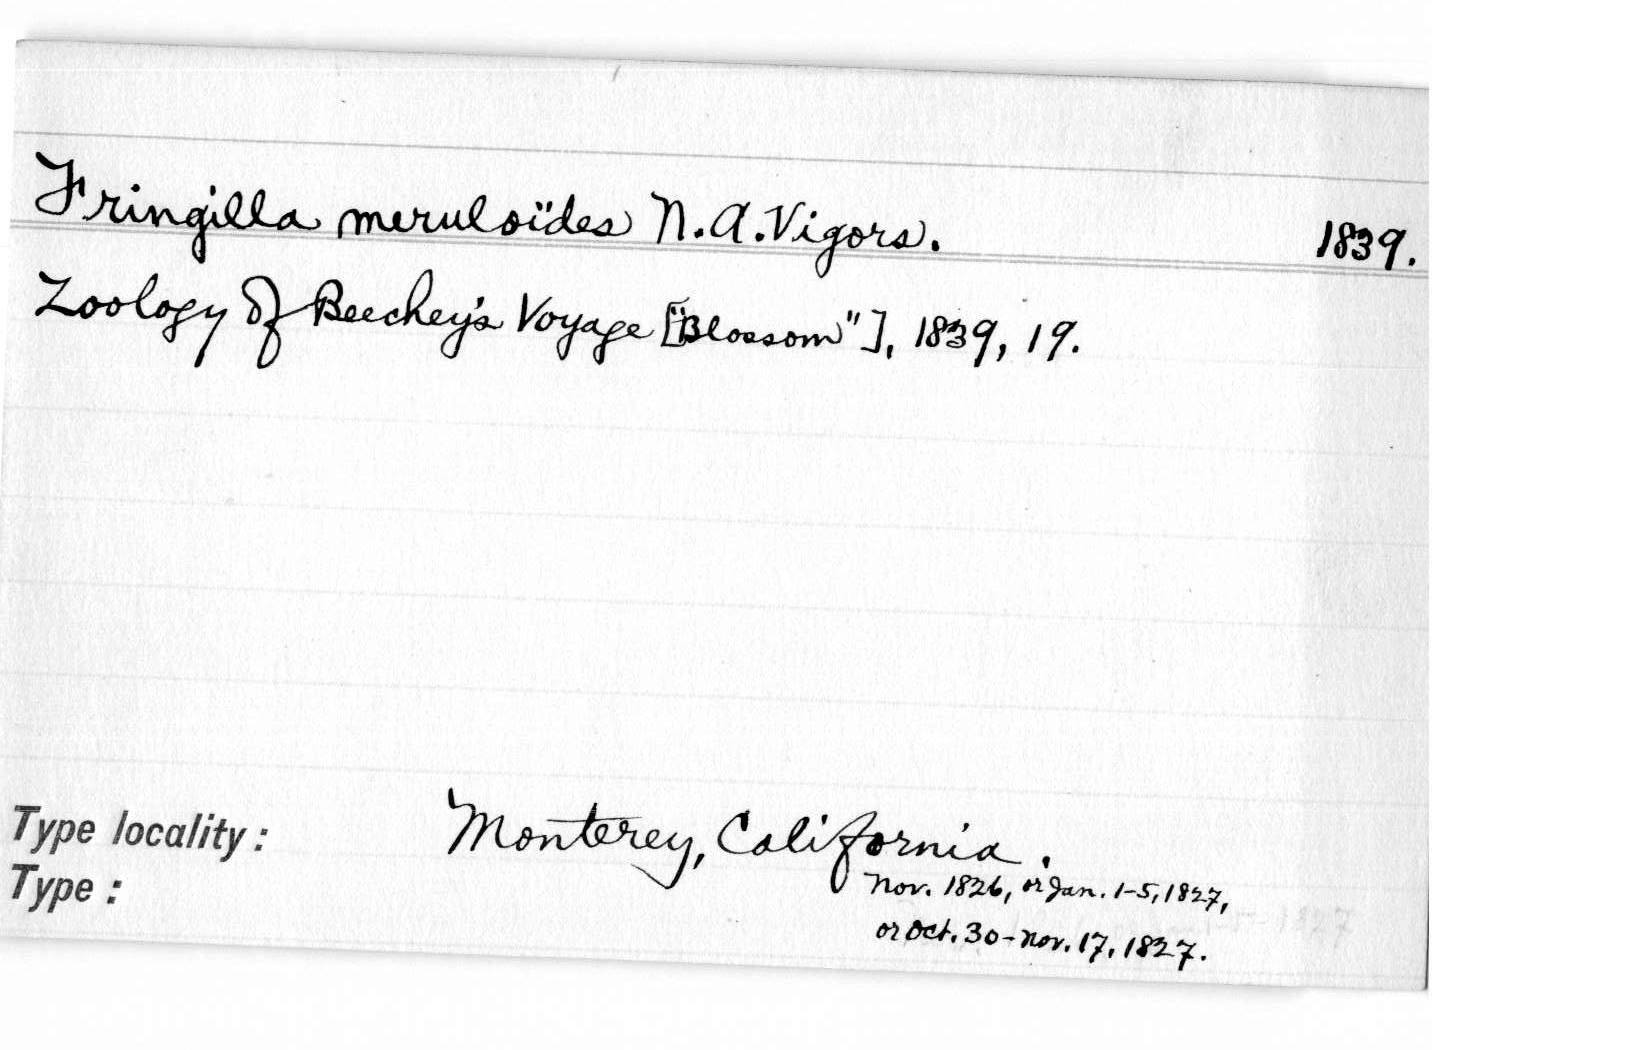 Fringilla meruloïdes N.A.Vigors. 1839.
Zoology of Beechey's Voyage ["Blossom"], 1839, 19.
Type locality: Monterey, California.
Nov. 1826, or Jan. 1-5, 1827,
or Oct. 30-Nov. 17, 1827.
Type: